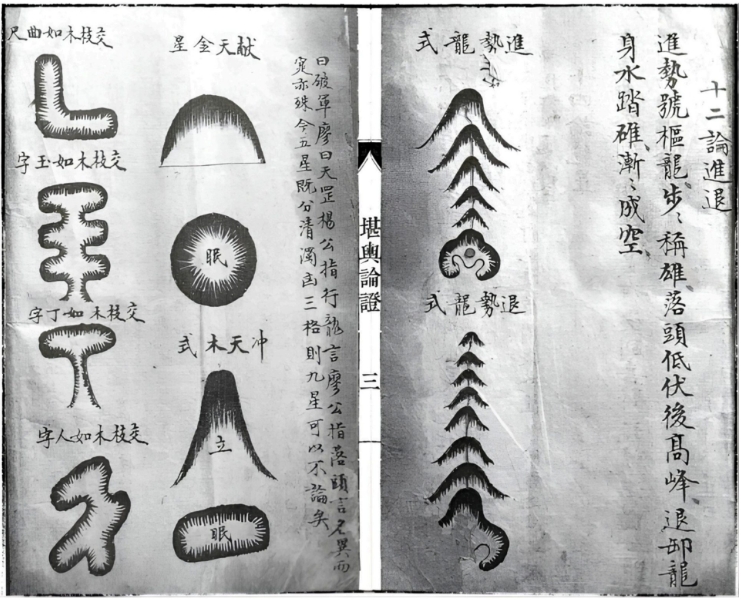 十二論進退
進勢號樞龍、步々稱雄、落頭低伏後髙峰、退卸龍
身水踏碓、漸々成空、
進勢龍式
退勢龍式
堪輿論證
三
曰破軍廖曰天罡楊公指行龍言廖公指落頭言名異而
寔亦殊今五星既分清濁凶三格則九星可以不論矣
献天金星
眠
冲天木式
立
眠
交枝木如曲尺
交枝木如玉字
交枝木如丁字
交枝木如人字